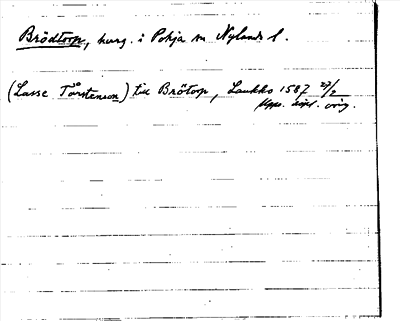 Brödtorp, herrg. i Pohja sn Nylands l.
(Lasse Torstenson) till Brötorp, Laukko 1587 27/2
orig.